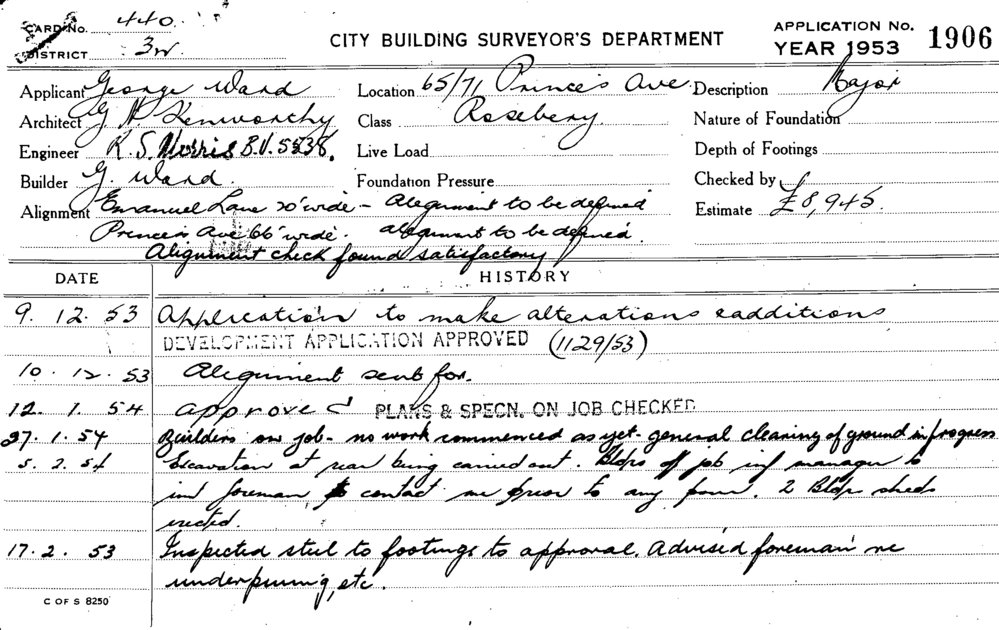 CARD No. 440.
DISTRICT 3W.
CITY BUILDING SURVEYOR'S DEPARTMENT
APPLICATION No.
YEAR 1953 1906
Applicant George Ward
Location 65/71 Princes Ave
Description Major
Architect G H Kenworthy
Class Rosebery.
Nature of Foundation
Engineer K. S. Morris B.V. 5538.
Live Load
Depth of Footings
Builder G. Ward.
Foundation Pressure
Checked by
Alignment Emanuel Lane 20' wide - Alignment to be defined
Estimate £8,945.
Princes Ave 66' wide. Alignment to be defined.
Alignment check found satisfactory
DATE HISTORY
9. 12. 53 Application to make alterations & additions
DEVELOPMENT APPLICATION APPROVED (1129/53)
10. 12. 53 Alignment sent for.
12. 1. 54 Approved PLANS & SPECN. ON JOB CHECKED
27. 1. 54 Builders on job - no work commenced as yet - general clearing of ground in progress
5. 2. 54 Excavation at rear being carried out. Bldrs off job inf manager to
inf foreman to contact me prior to any pour. 2 Bldrs sheds
erected.
17. 2. 53 Inspected steel to footings to approval. Advised foreman re
underpinning, etc.
C OF S 8250